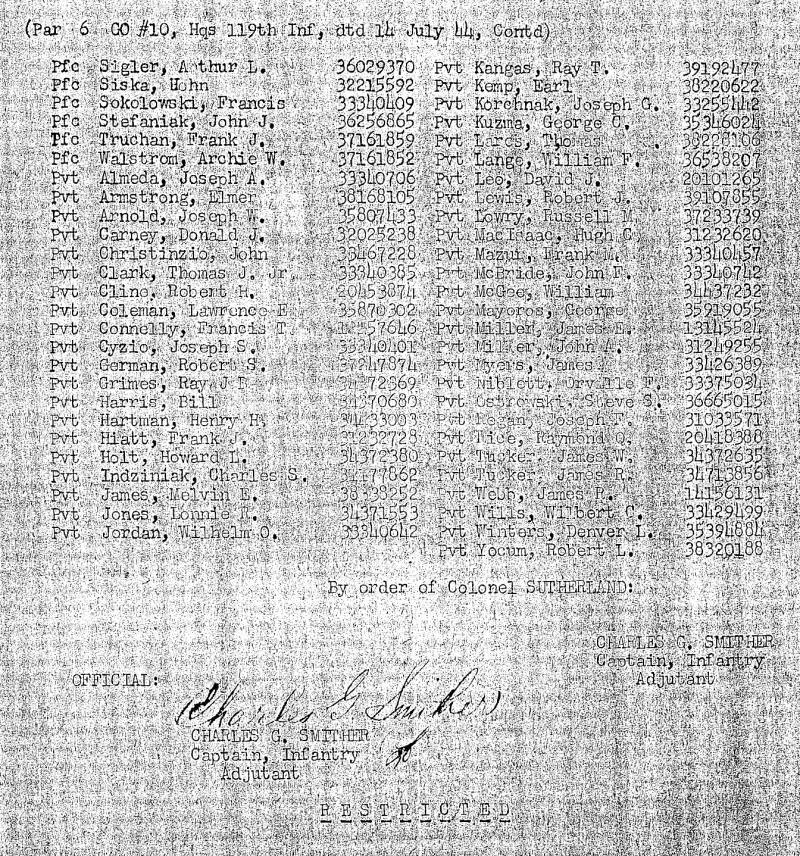 (Par 6 GO #10, Hqs 119th Inf, dtd 14 July 44, Contd)
Pfc Sigler, Arthur L. 36029370 Pvt Kangas, Ray T. 39192477
Pfc Siska, John 32215592 Pvt Kemp, Earl 38220622
Pfc Sokolowski, Francis 33340409 Pvt Korchnak, Joseph G. 33255442
Pfc Stefaniak, John J. 36256865 Pvt Kuzma, George C. 35346024
Pfc Truchan, Frank J. 37161859 Pvt Lares, Thomas 38228106
Pfc Walstrom, Archie W. 37161852 Pvt Lange, William F. 36538207
Pvt Almeda, Joseph A. 33340706 Pvt Leo, David J. 20101265
Pvt Armstrong, Elmer 38168105 Pvt Lewis, Robert J. 39107855
Pvt Arnold, Joseph W. 35807433 Pvt Lowry, Russell M. 37233739
Pvt Carney, Donald J. 32025238 Pvt MacIsaac, Hugh C. 31232620
Pvt Christinzio, John 33467228 Pvt Mazur, Frank M. 33340457
Pvt Clark, Thomas J. Jr. 33340385 Pvt McBride, John F. 33340742
Pvt Cline, Robert H. 20453874 Pvt McGee, William 34437232
Pvt Coleman, Lawrence E 35870302 Pvt Mayoros, George 35919055
Pvt Connelly, Francis T. Pvt Miller, James E. 13145524
Pvt Cyzio, Joseph S. 33340401 Pvt Miller, John A. 31249255
Pvt German, Robert S. 37247874 Pvt Myers, James 33426389
Pvt Grimes, Ray J 34372369 Pvt Niblett, Orville F. 33375034
Pvt Harris, Bill 34370680 Pvt Ostrovski, Steve S. 36665015
Pvt Hartman, Henry H. 34433003 Pvt Joseph F. 31033571
Pvt Hiatt, Frank J. 31232728 Pvt Raymond O. 20418388
Pvt Holt, Howard L. 34372380 Pvt Tucker, James W. 34372635
Pvt Indziniak, Charles S. Pvt Tucker, James R. 34713856
Pvt James, Melvin E. 38338252 Pvt Webb, James R. 14156131
Pvt Jones, Lonnie R. 34371553 Pvt Wills, Wilbert C. 33429499
Pvt Jordan, Wilhelm O. 33340642 Pvt Winters, Denver L. 35394884
Pvt Yocum, Robert L. 38320188
By order of Colonel SUTHERLAND:
CHARLES G. SMITHER
Captain, Infantry
Adjutant
OFFICIAL:
Charles G. Smither
CHARLES G. SMITHER
Captain, Infantry
Adjutant
R E S T R I C T E D